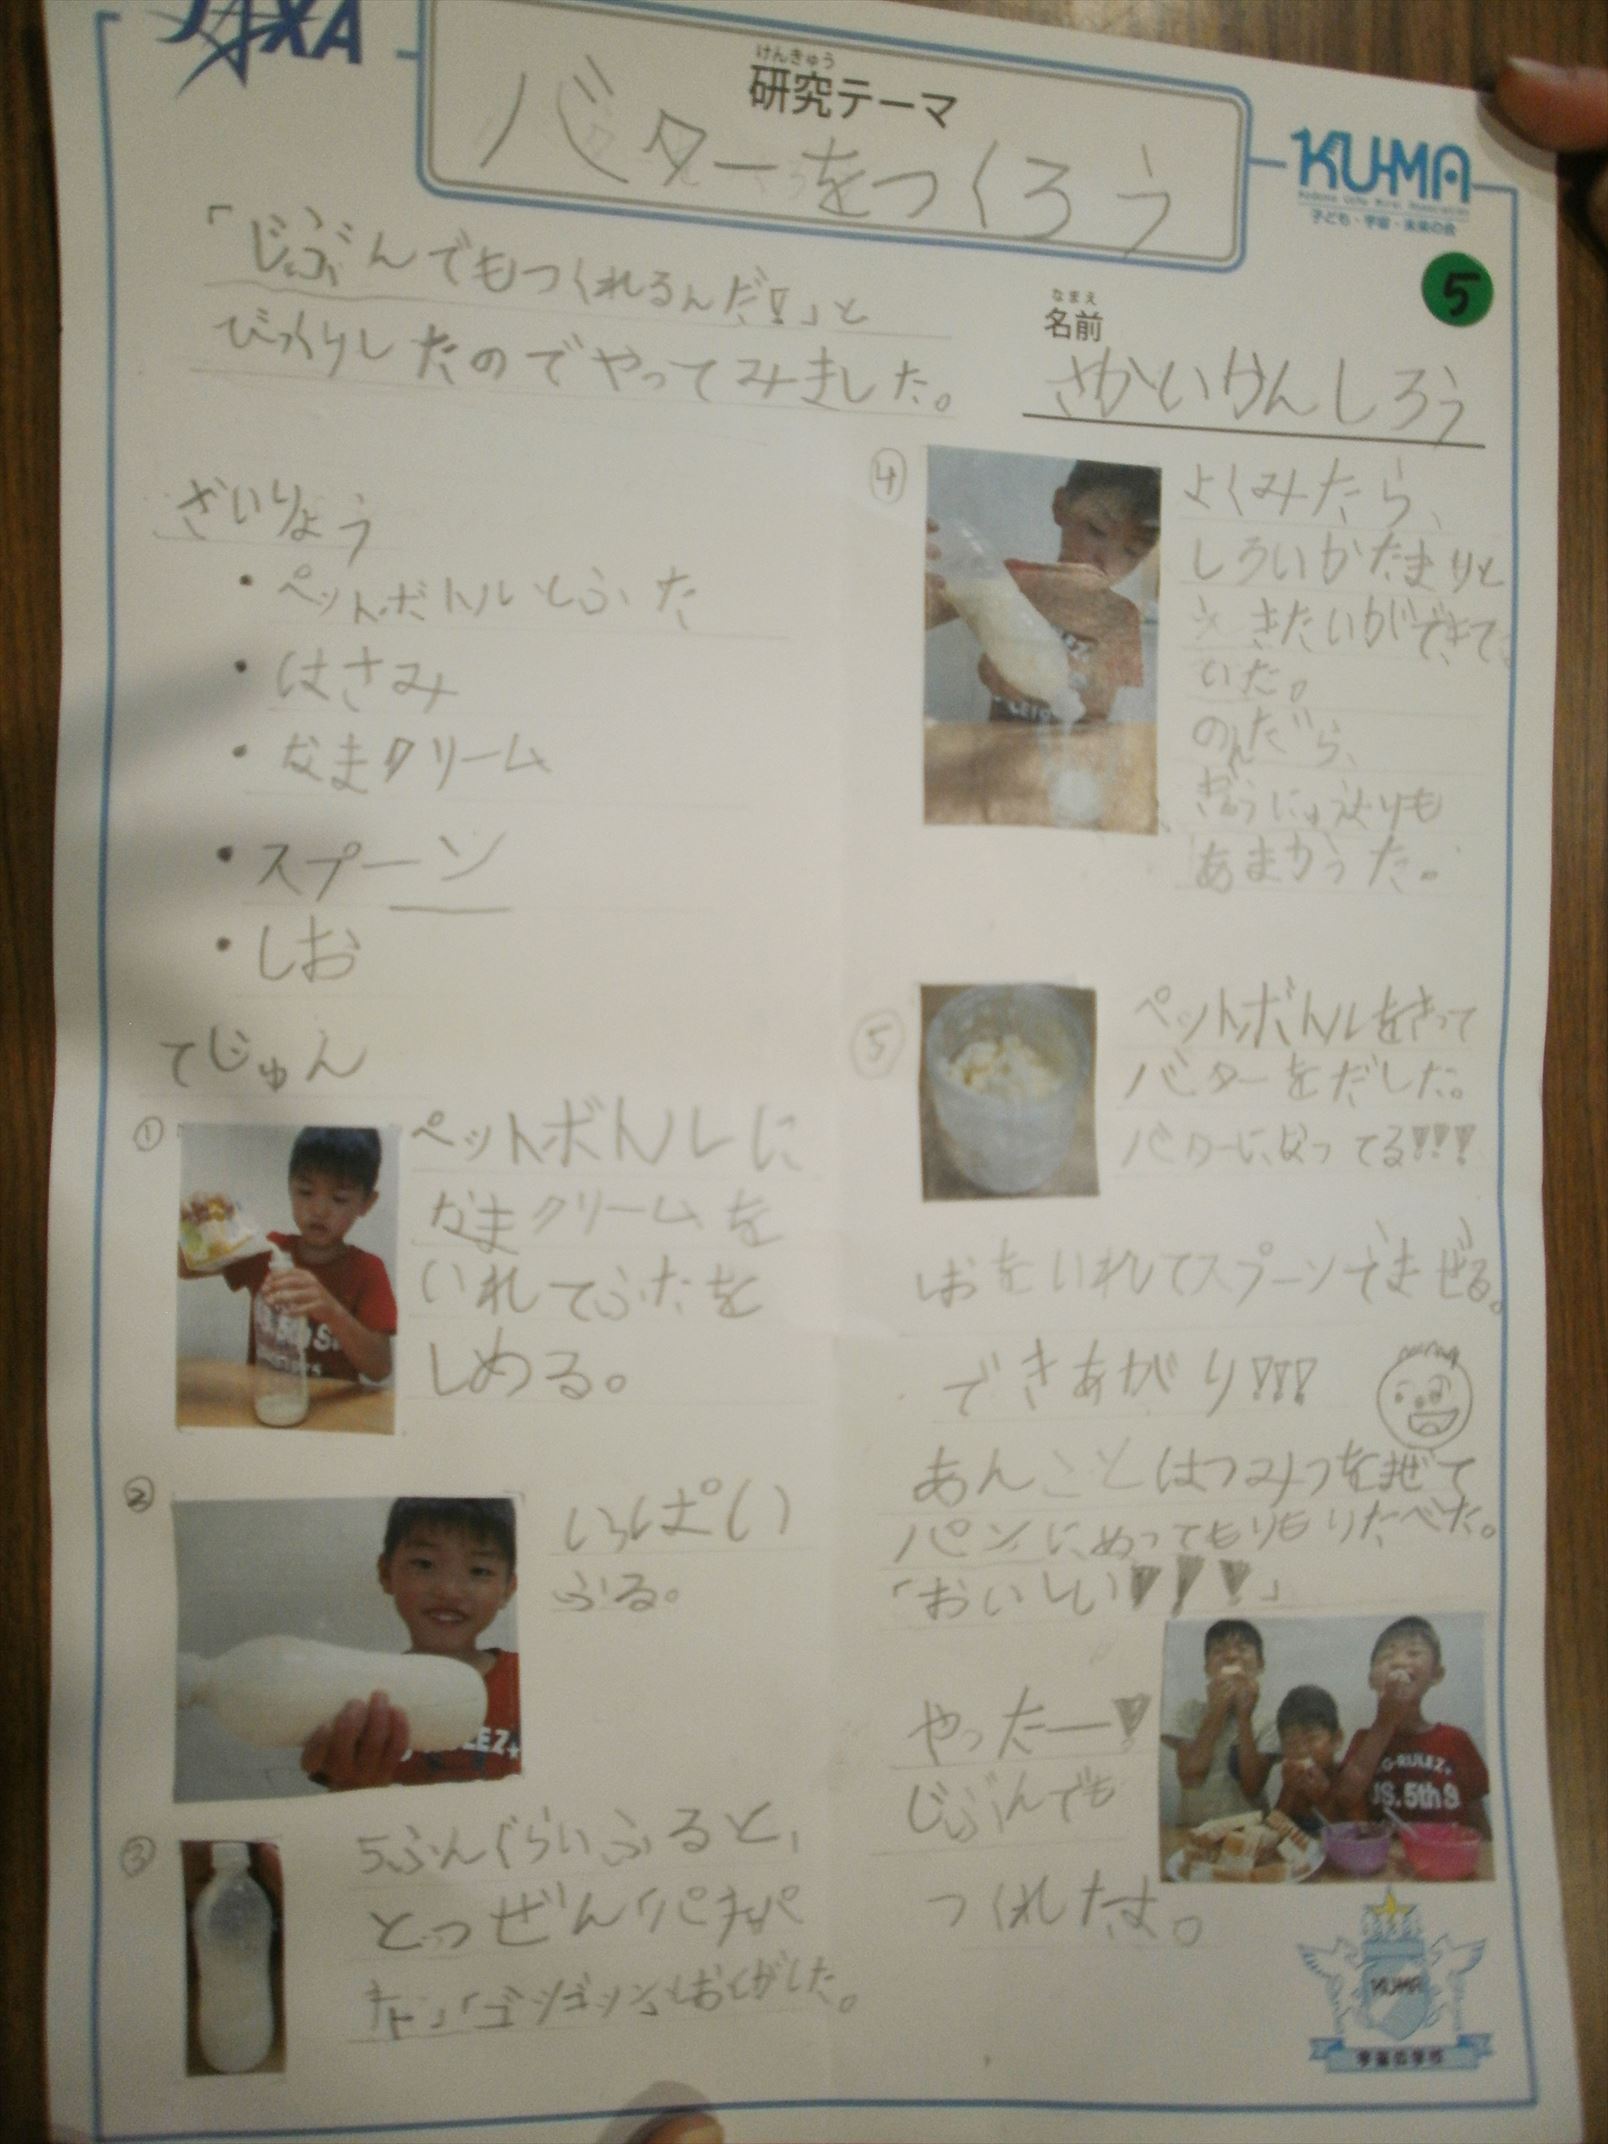 JAXA
けんきゅう
研究テーマ
バターをつくろう
KU-MA
子ども・宇宙・未来の会
5
「じぶんでもつくれるんだ!」と
びっくりしたのでやってみました。
なまえ
名前
さかいけんしろう
ざいりょう
・ペットボトルとふた
・はさみ
・なまクリーム
・スプーン
・しお
てじゅん
①
ペットボトルに
なまクリームを
いれてふたを
しめる。
②
いっぱい
ふる。
③
5ふんぐらいふると、
とつぜん
「ゴンゴン」とおとがした。
④
よくみたら、
しろいかたまりと
えきたいができて
いた。
のんだら、
ぎゅうにゅうよりも
あまかった。
⑤
ペットボトルをきって
バターをだした。
バターになってる!!!
しおをいれてスプーンでまぜる。
できあがり!!!
あんことはつみつをまぜて
パンにぬってもりもりたべた。
「おいしい!!!」
やったー!
じぶんでも
つくれたよ。
KUMA
宇宙の学校